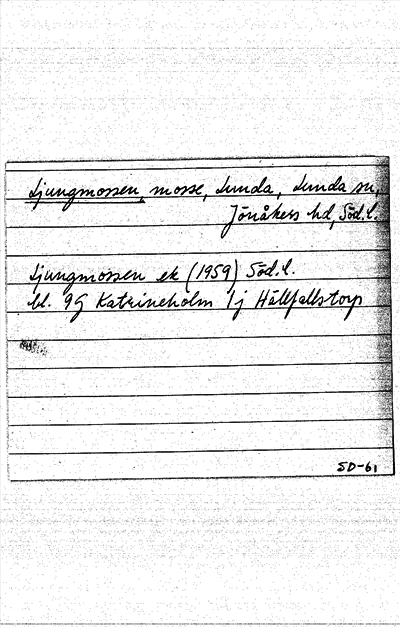 Ljungmossen, mosse, Lunda, Lunda sn,
Jönåkers hd, Söd.l.
Ljungmossen ek (1959) Söd.l.
bl. 9G Katrineholm 1j Hällfallstorp
SD-61